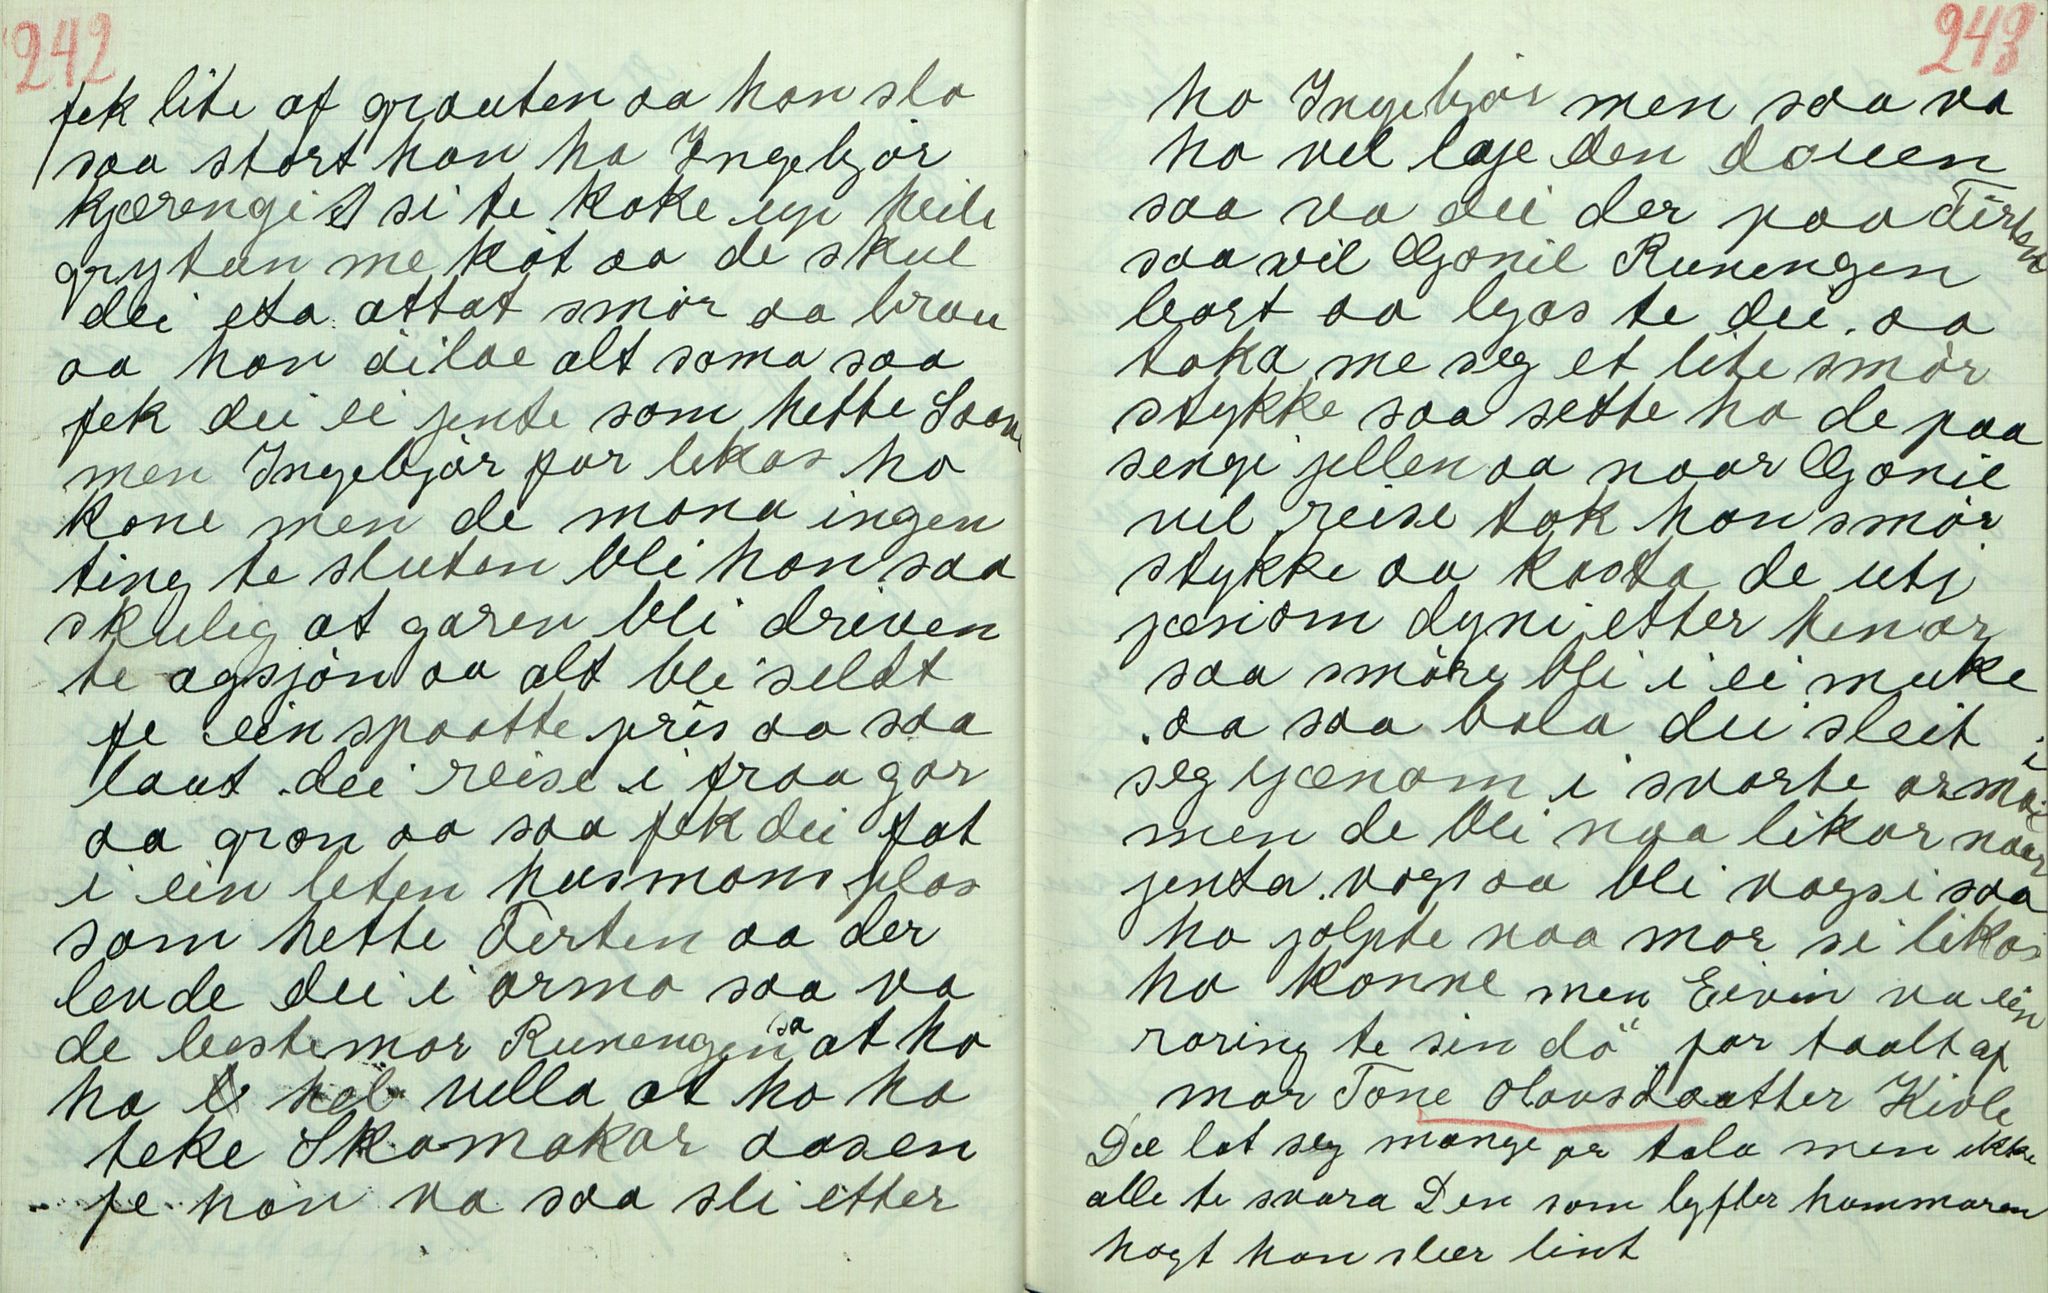 242
fek lite af grauten aa han slo
saa stort han ha Ingebjør
kjærengi si te koke up heile
grytun me kjøt aa de skul
dei eta attat smør aa brau
aa han øilae alt sama saa
fek dei ei jente som hette
men Ingebjør for likas ho
kone men de mona ingen
ting te sluten blei han saa
skulig at garen blei driven
te agsjon aa alt blei seldt
fe ein spaatte pris aa saa
laut dei reise i fraa gar
aa gron aa saa fek dei fat
i ein leten husmans plas
som hette Tirten aa der
levde dei i armo saa va
de bestemor Runengen sa at ho
ha hel vella at ho ha
teke Skomakar aasen
fe han va saa sli etter
243
ho Ingebjør men saa va
ho vel laje den douen
saa va dei der paa Tirten
saa vil Gonil Runengen
bort aa lyas te dei. aa
toka me seg et lite smør
stykke saa sette ho de paa
sengi jellen aa naar Gonil
vel reise tok han smør
stykke aa kasta de uti
jæniom dyni etter henar
saa smøre blei i ei muke
aa saa bala dei sleit
seg igænom i svarte armoi
men de blei naa likar naar
jenta vogs aa blei vagsi saa
ho jolpte naa mor si likas
ho konne men Eivin va ein
raring te sin dø" for taalt af
mor Tone Olavsdaatter Kivle
Dæ lat seg mange or tala men ikkje
alle te svara Den som lyfter hammaren
høgt han slær lint